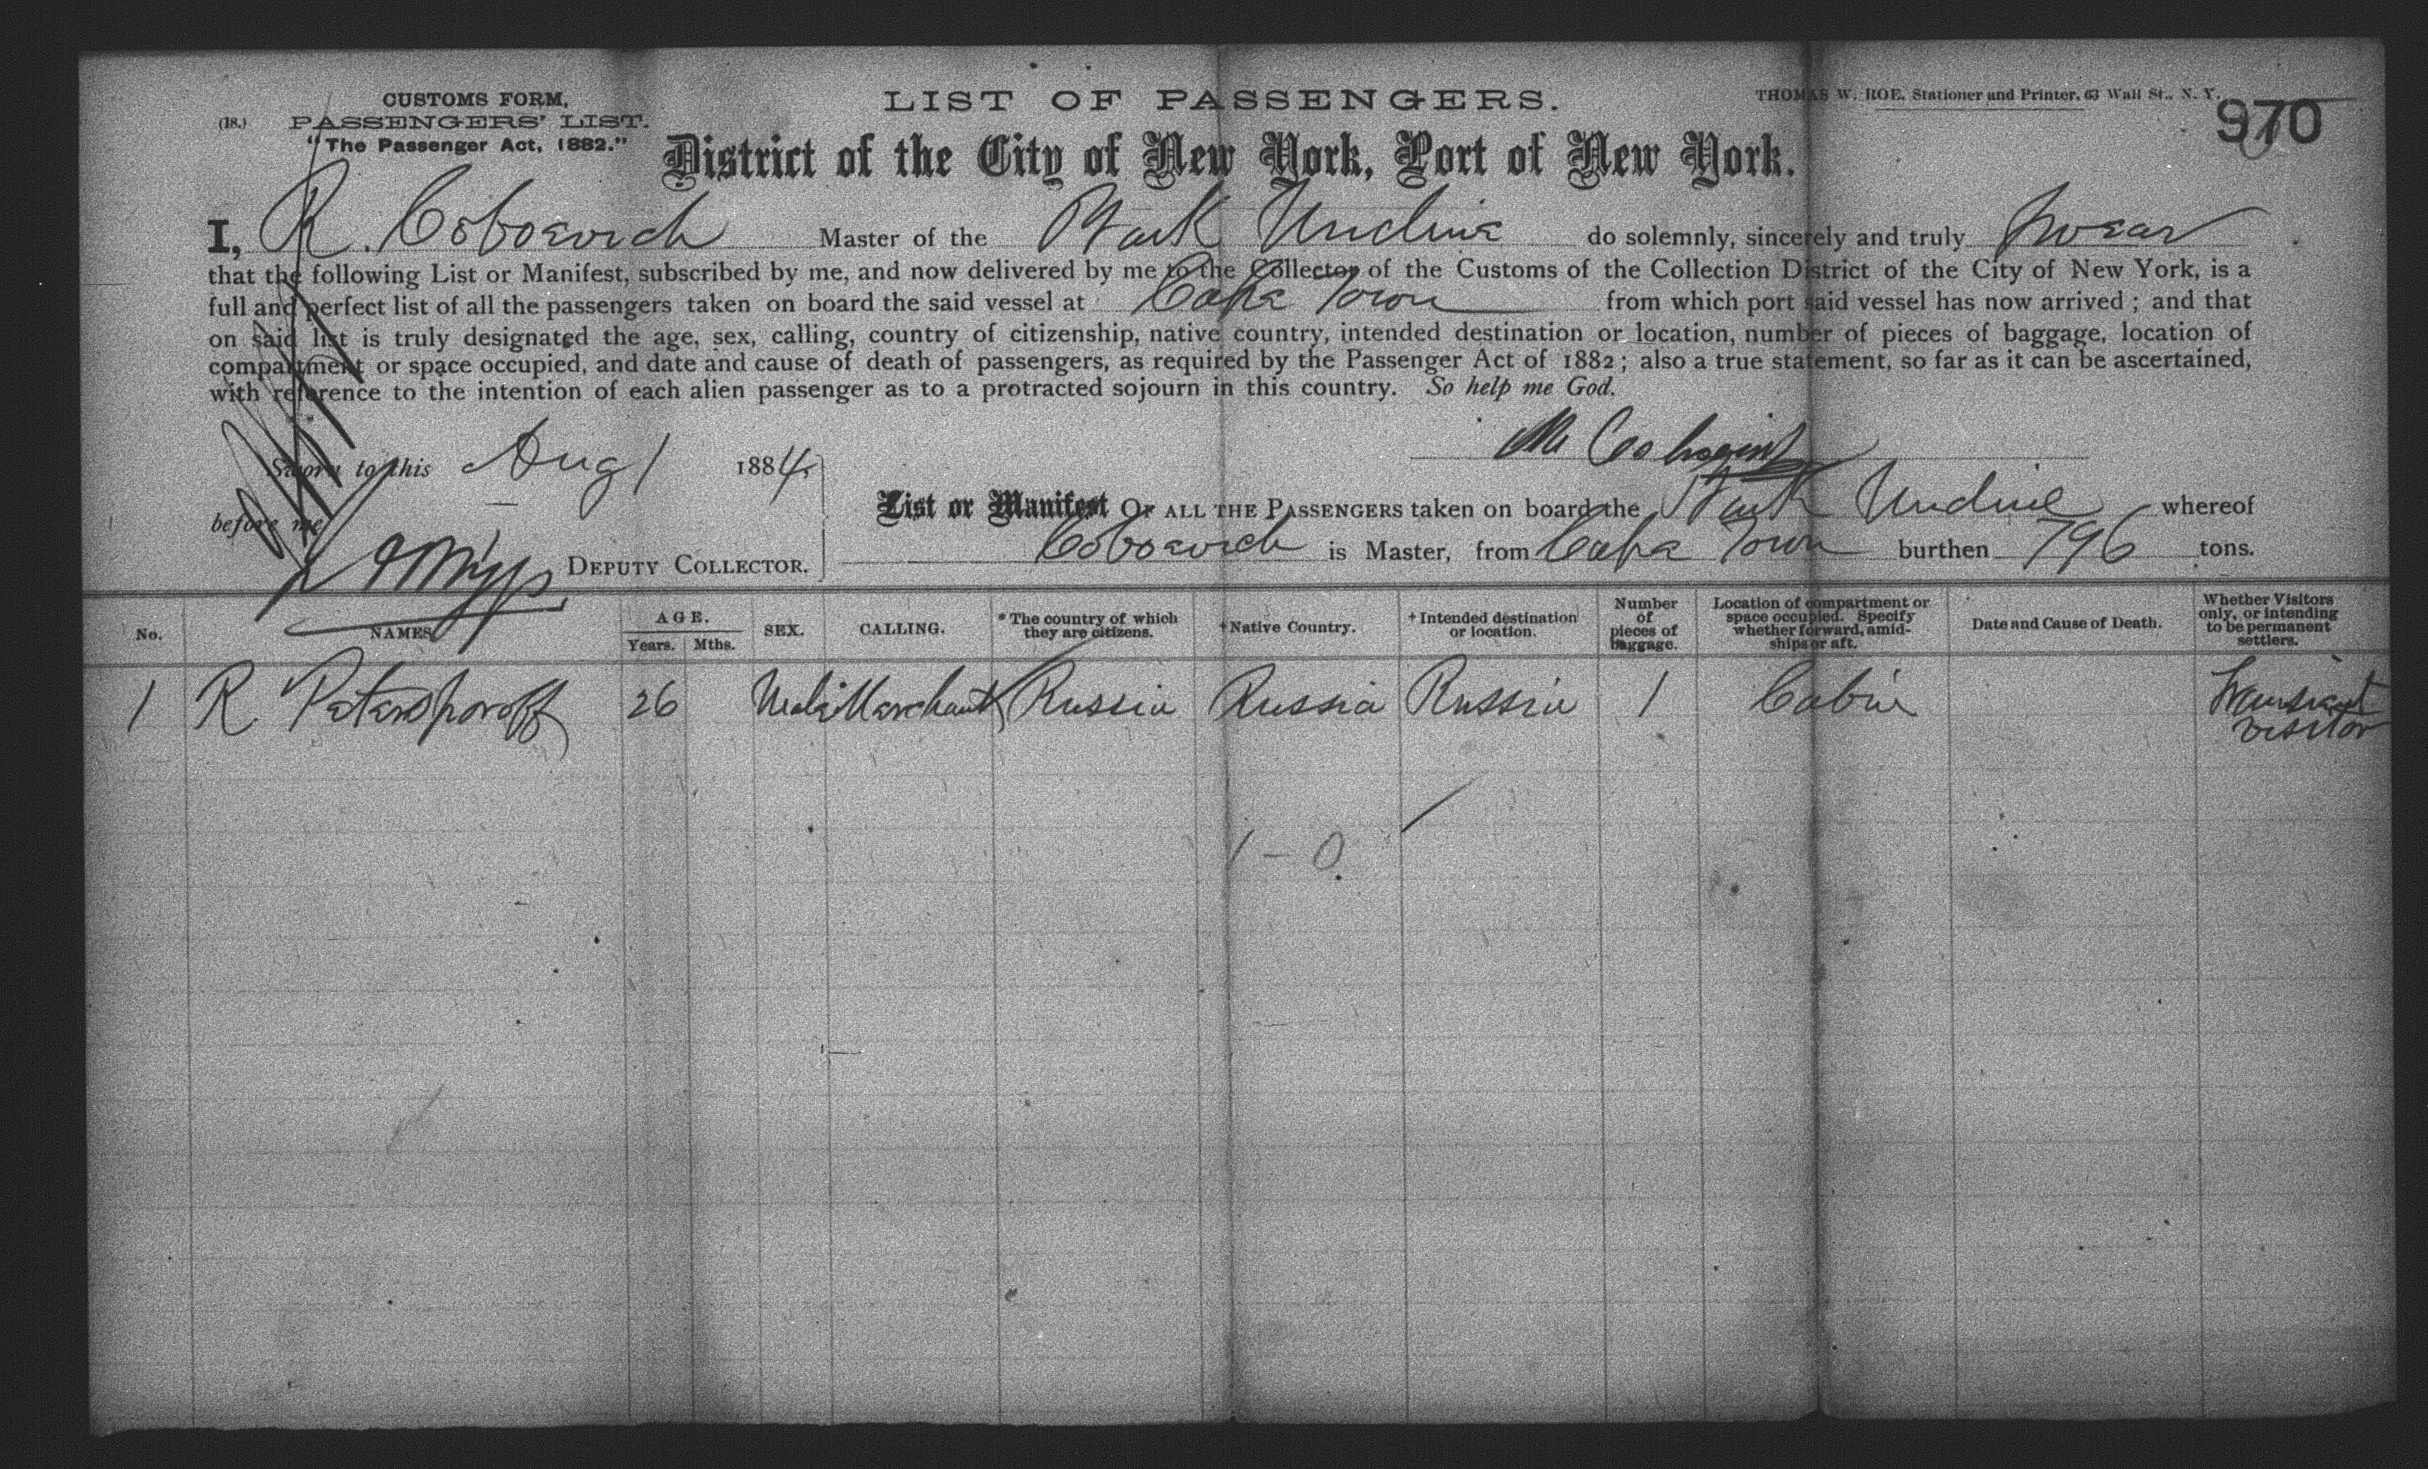 CUSTOMS FORM,
(18.) PASSENGERS' LIST.
"The Passenger Act, 1882."
LIST OF PASSENGERS.
THOMAS W. ROE, Stationer and Printer, 63 Wall St., N. Y.
970
District of the City of New York, Port of New York.
I, R. Cobosvich Master of the Bark Undine do solemnly, sincerely and truly swear
that the following List or Manifest, subscribed by me, and now delivered by me to the Collector of the Customs of the Collection District of the City of New York, is a
full and perfect list of all the passengers taken on board the said vessel at Cape Town from which port said vessel has now arrived; and that
on said list is truly designated the age, sex, calling, country of citizenship, native country, intended destination or location, number of pieces of baggage, location of
compartment or space occupied, and date and cause of death of passengers, as required by the Passenger Act of 1882; also a true statement, so far as it can be ascertained,
with reference to the intention of each alien passenger as to a protracted sojourn in this country. So help me God.
Sworn to this Aug 1 1884.
before me
DEPUTY COLLECTOR.
List or Manifest OF ALL THE PASSENGERS taken on board the Bark Undine whereof
Cobosvich is Master, from Cape Town burthen 796 tons.
No. NAMES. AGE. Years. Mths. SEX. CALLING. * The country of which they are citizens. † Native Country. † Intended destination or location. Number of pieces of baggage. Location of compartment or space occupied. Specify whether forward, amidships or aft. Date and Cause of Death. Whether Visitors only, or intending to be permanent settlers.
1 R. 26 Male Merchant Russia Russia Russia 1 Cabin Transient visitor
1 - 0